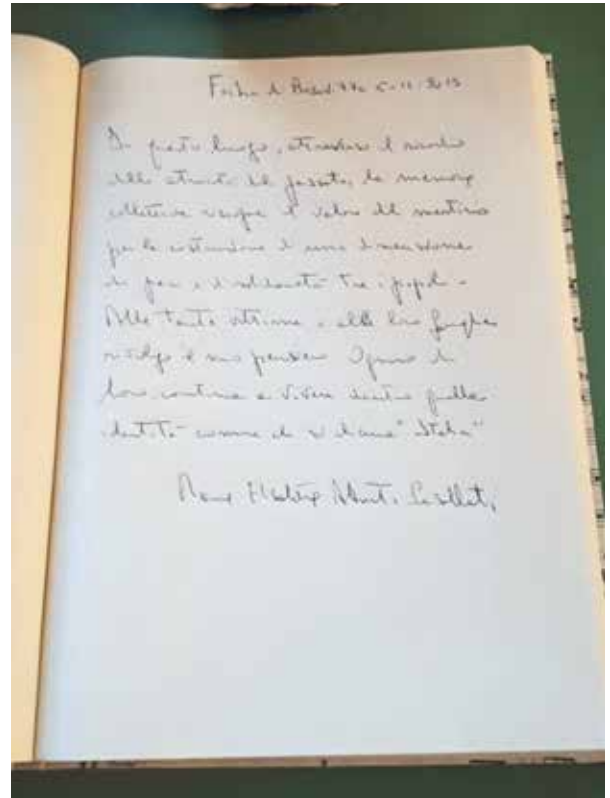 Foiba di Basovizza 5-11-2018
In questo luogo, attraverso il ricordo
delle atrocità del passato, la memoria
collettiva scopre il valore del martirio
per la costruzione di una dimensione
di pace e di solidarietà tra i popoli.
Alle tante vittime e alle loro famiglie
rivolgo il mio pensiero. Ognuno di
loro continua a vivere dentro quella
identità comune che si chiama "Italia"
Maria Elisabetta Alberti Casellati